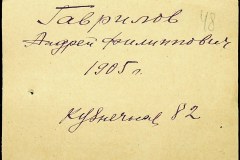 Гаврилов
Андрей Филиппович
1905 г.
Кузнечная 82